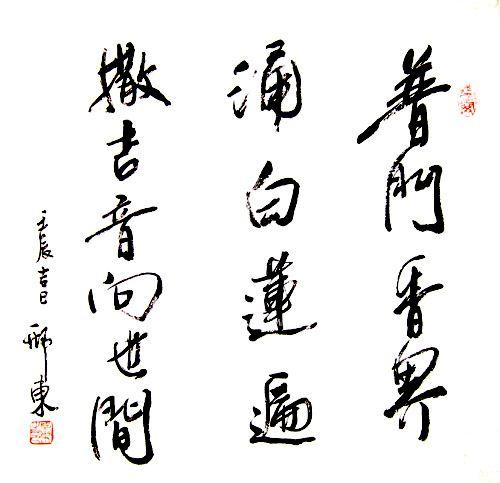 普門香界
涌白蓮遍
撒吉音向世間
壬辰吉日
邢東